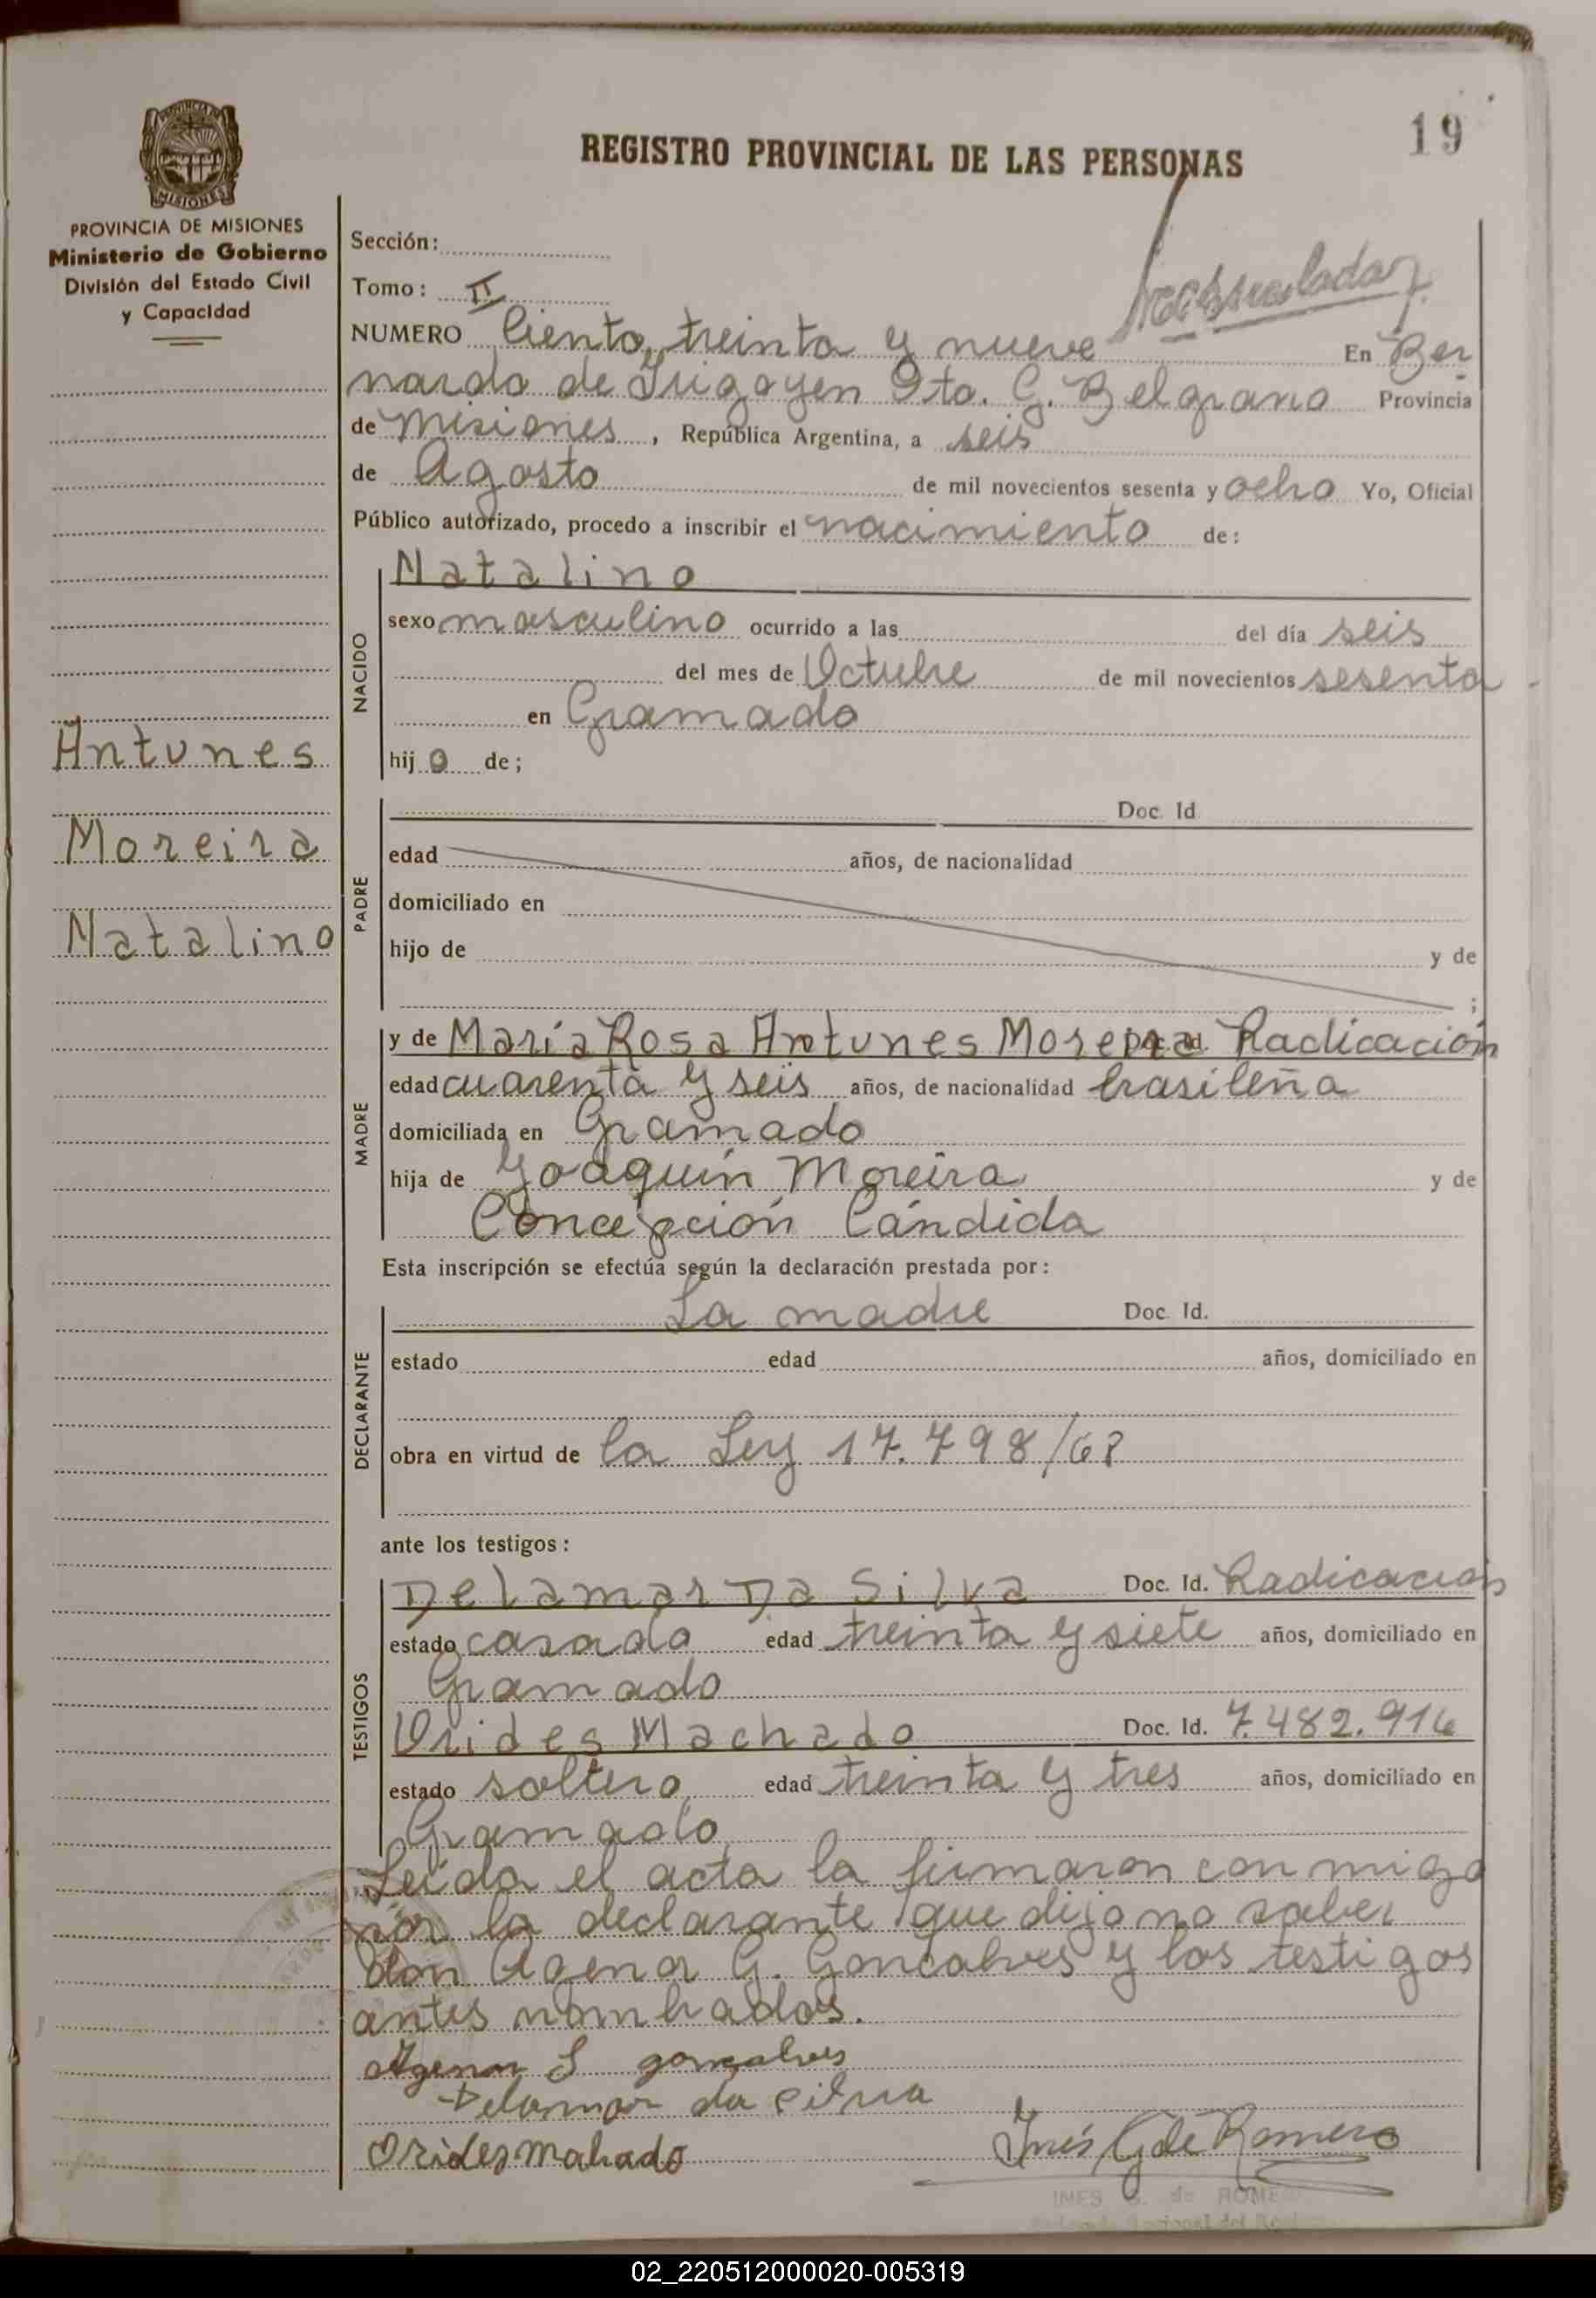 19
REGISTRO PROVINCIAL DE LAS PERSONAS
PROVINCIA DE MISIONES
MISIONES
PROVINCIA DE MISIONES
Ministerio de Gobierno
División del Estado Civil
y Capacidad
Antunes
Moreira
Natalino
Sección:
Tomo: II
NUMERO Ciento treinta y nueve En Ber
nardo de Irigoyen Dto. G. Belgrano Provincia
de Misiones, República Argentina, a seis
de Agosto de mil novecientos sesenta y ocho Yo, Oficial
Público autorizado, procedo a inscribir el nacimiento de:
NACIDO
Natalino
sexo masculino ocurrido a las del día seis
del mes de Octubre de mil novecientos sesenta
en Gramado
hij o de;
PADRE
Doc. Id
edad años, de nacionalidad
domiciliado en
hijo de y de
;
MADRE
y de María Rosa Antunes Moreira Radicación
edad cuarenta y seis años, de nacionalidad brasileña
domiciliada en Gramado
hija de Joaquín Moreira y de
Concepción Cándida
Esta inscripción se efectúa según la declaración prestada por:
DECLARANTE
La madre Doc. Id.
estado edad años, domiciliado en
obra en virtud de la Ley 17.798/68
ante los testigos:
TESTIGOS
Delamar Da Silva Doc. Id. Radicación
estado casado edad treinta y siete años, domiciliado en
Gramado
Orides Machado Doc. Id. 7.482.916
estado soltero edad treinta y tres años, domiciliado en
Gramado
Leída el acta la firmaron conmigo
por la declarante que dijo no saber
don Agenor G. Goncalves y los testigos
antes nombrados.
Agenor S goncalves
Delamar da Silva
Orides Mahado
Inés G de Romero
INES G. de ROME
02_220512000020-005319